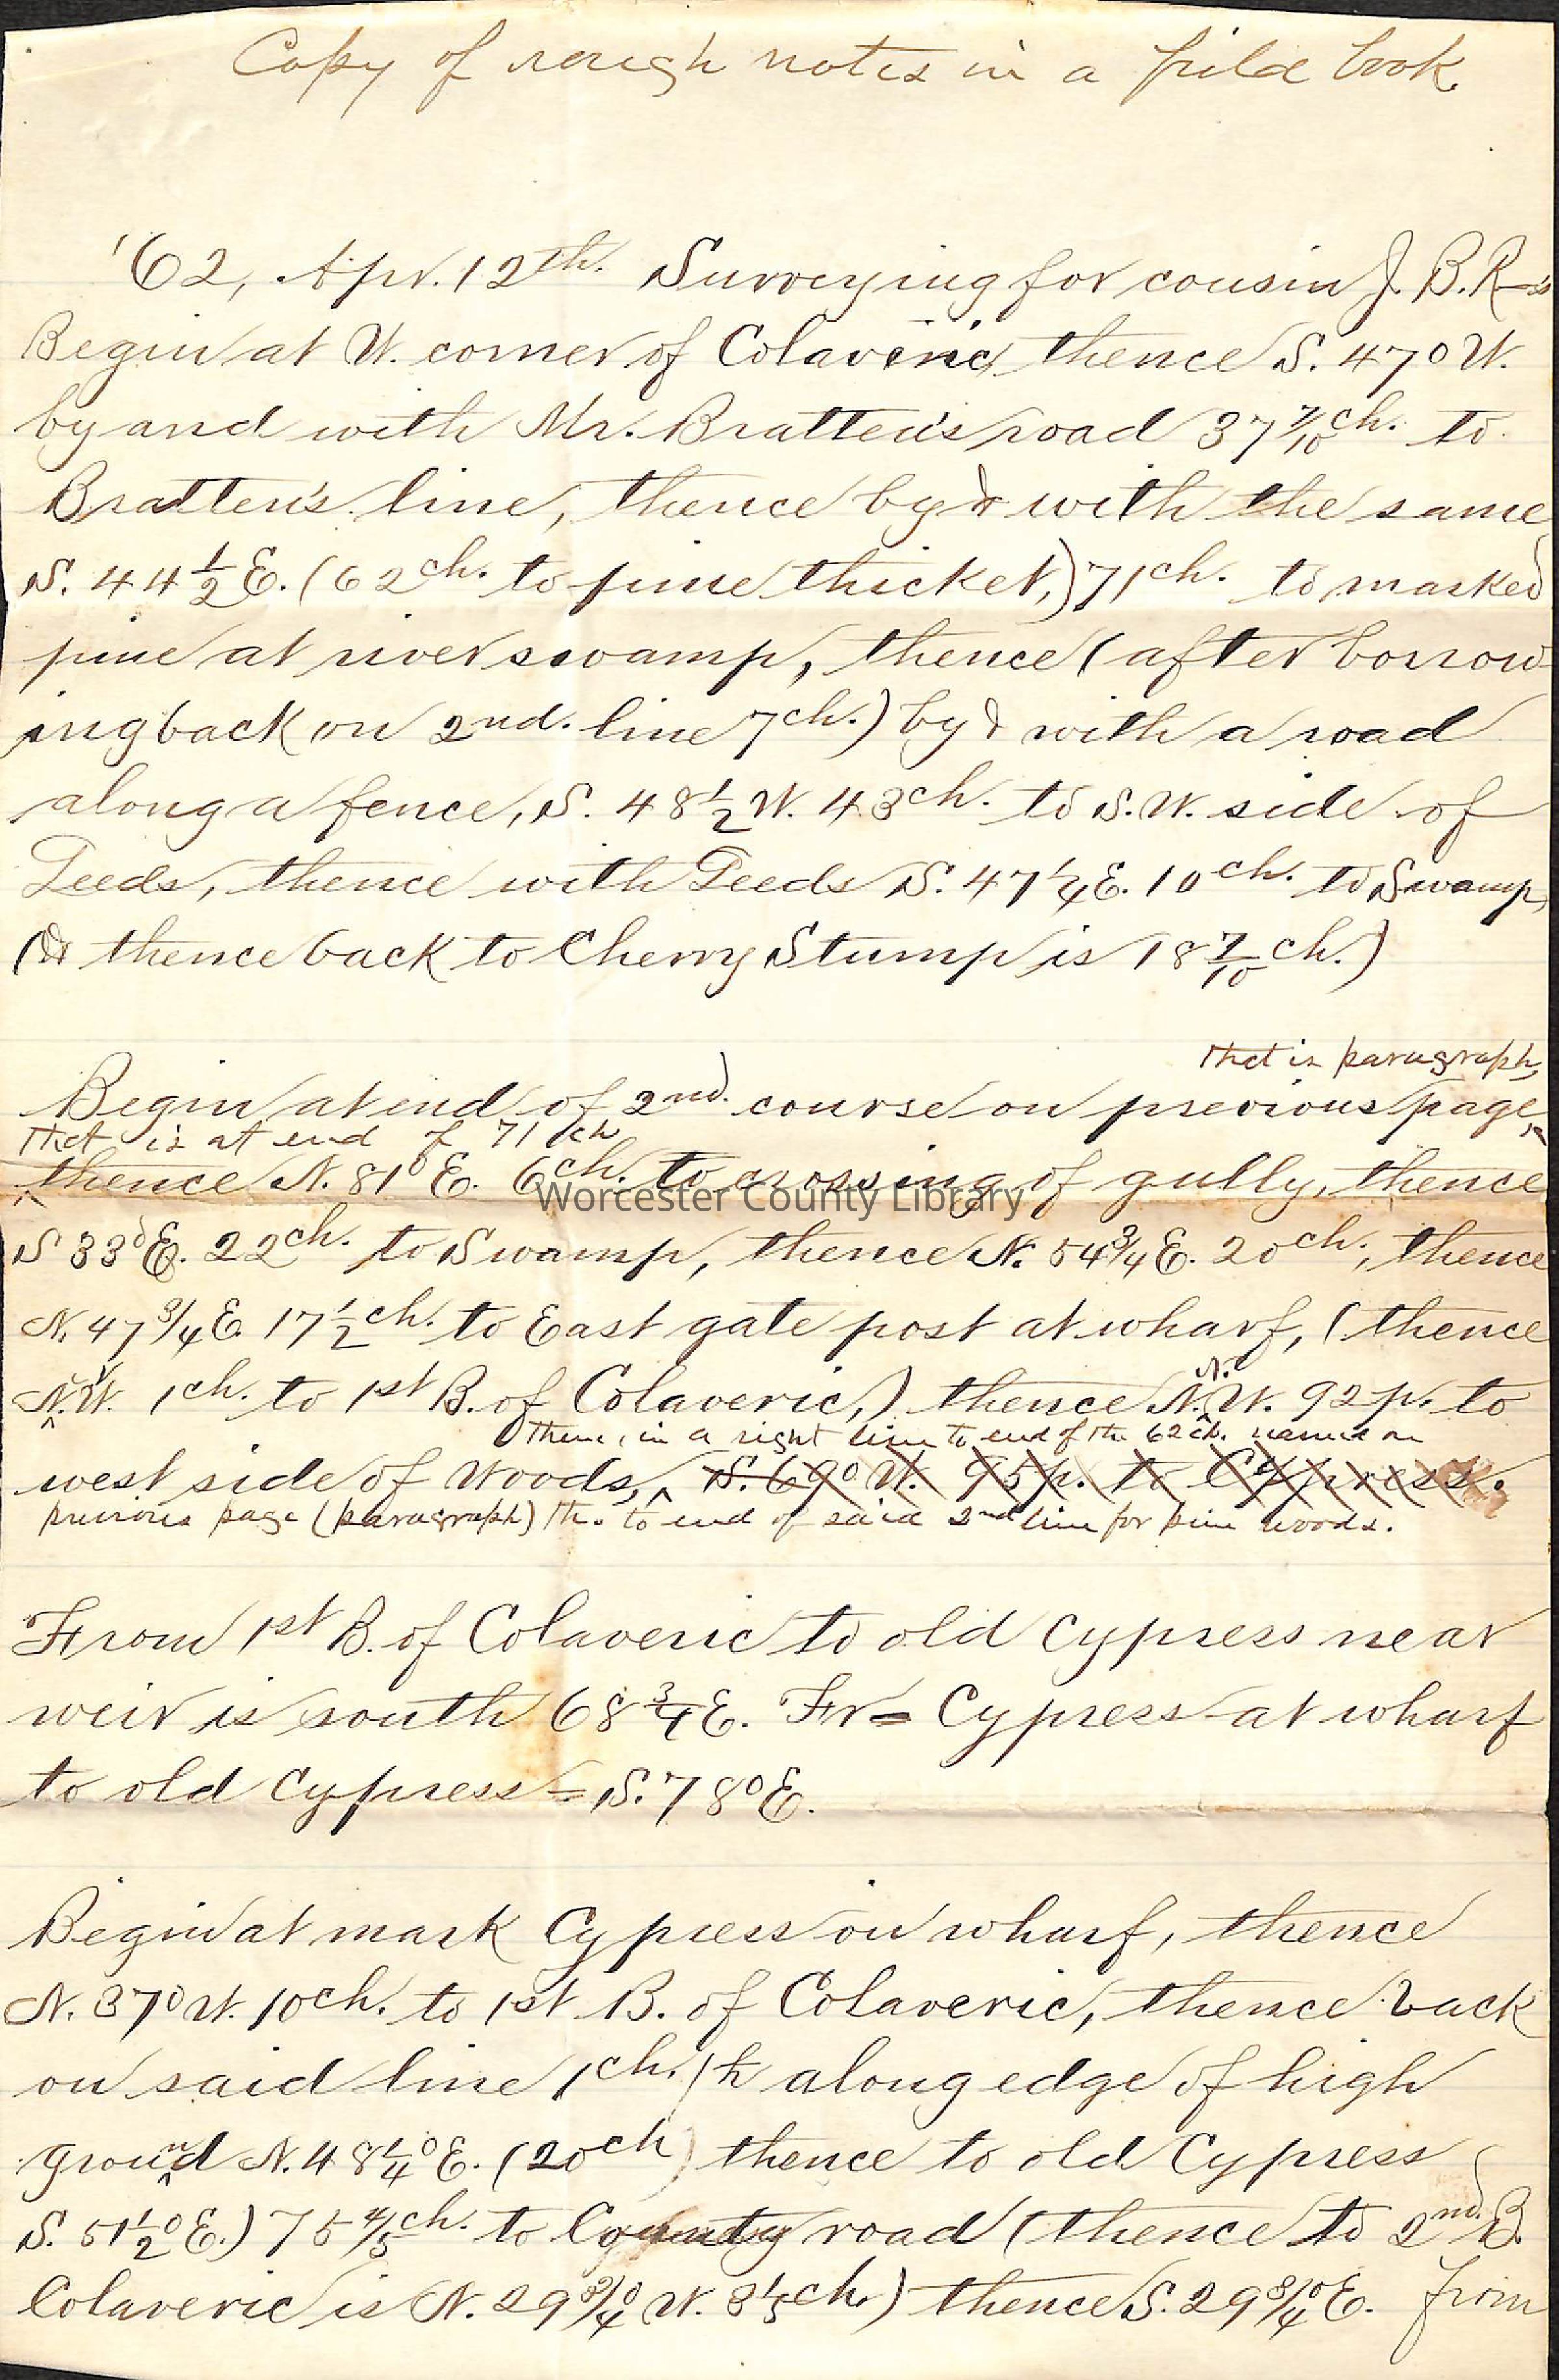 Copy of rough notes in a field book.
'62, Apr. 12th. Surveying for cousin J. B. R—s
Begin at W. corner of Colaveric, thence S. 47° W.
by and with Mr. Bratten's road 37 7/10 ch. to
Bratten's line, thence by & with the same
S. 44 1/2 E. (62 ch. to pine thicket,) 71 ch. to marked
pine at river swamp, thence (after borrow-
ing back on 2nd. line 7 ch.) by & with a road
along a fence, S. 48 1/2 W. 43 ch. to S.W. side of
Deeds, thence with Deeds S. 47 1/4 E. 10 ch. to Swamp,
(& thence back to Cherry Stump is 18 7/10 ch.)
that is paragraph,
Begin at end of 2nd. course on previous page,
that is at end of 71 ch
thence N. 81° E. 6 ch. to crossing of gully, thence
Worcester County Library
S 33° E. 22 ch. to Swamp, thence N. 54 3/4 E. 20 ch., thence
N. 47 3/4 E. 17 1/2 ch. to East gate post at wharf, (thence
N.W. 1 ch. to 1st B. of Colaveric,) thence N. N. W. 92 p. to
thence, in a right line to end of the 62 ch. named on
west side of Woods, S. 69° W. 95 p. to Cypress.
previous page (paragraph) th. to end of said 2nd line for pine woods.
From 1st B. of Colaveric to old Cypress near
weir is south 68 3/4 E. Fr= Cypress at wharf
to old Cypress = S. 78° E.
Begin at mark Cypress on wharf, thence
N. 37° W. 10 ch. to 1st B. of Colaveric, thence back
on said line 1 ch. / th along edge of high
ground N. 48 1/4° E. (20 ch) thence to old Cypress
S. 51 1/2° E.) 75 4/5 ch. to County road (thence to 2nd. B.
Colaveric is N. 29 3/4° W. 3 1/5 ch.) thence S. 29 3/4° E. from